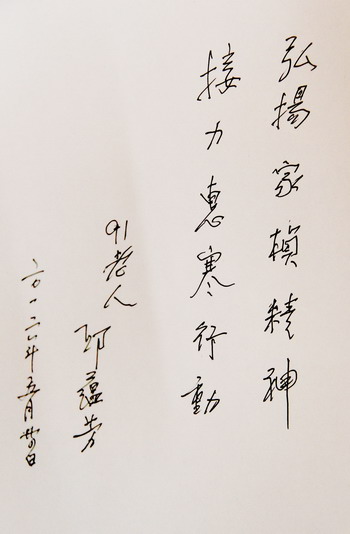 弘揚家楨精神
接力惠寒行動
91老人
邱蘊芳
二〇一六年五月廿日